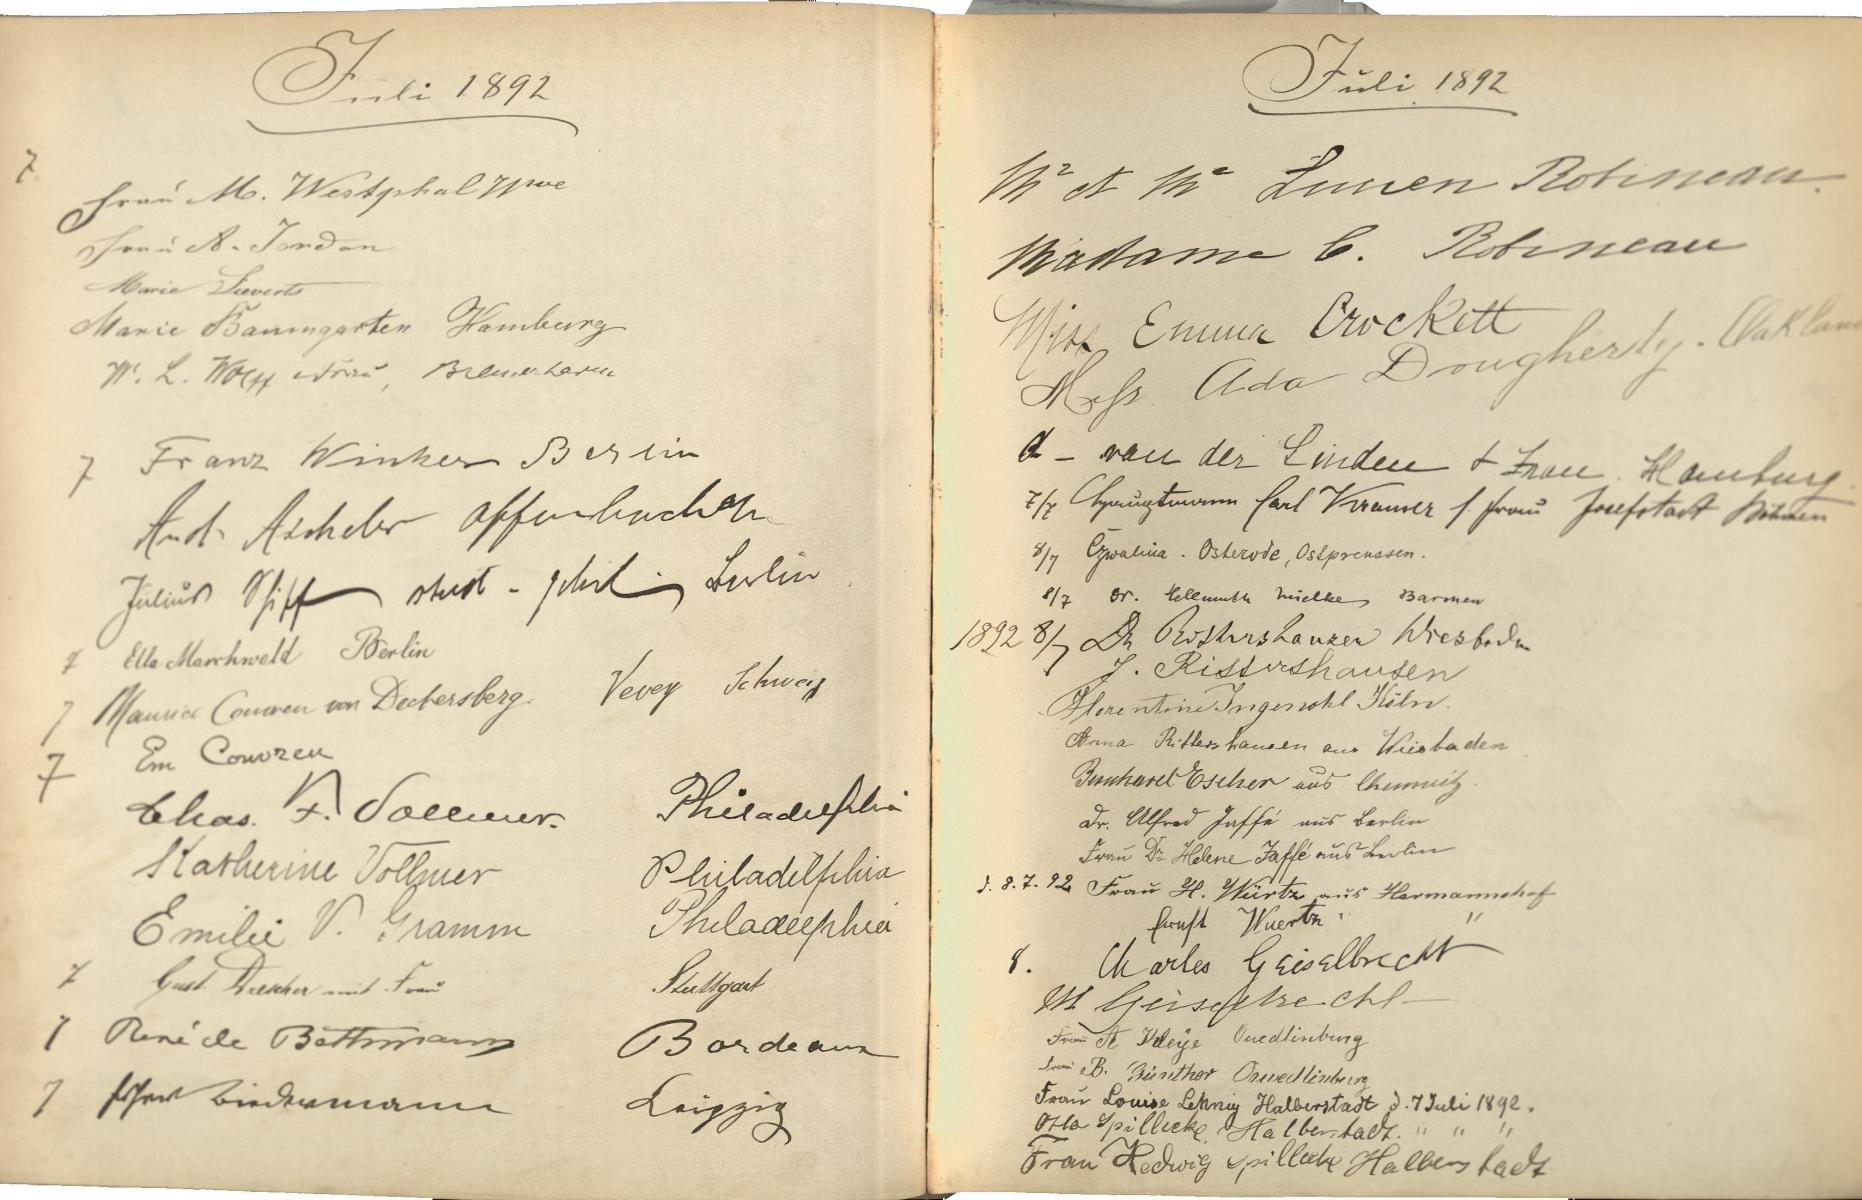 Juli 1892
7.
Frau M. Westphal Wwe
Frau A. Jordan
Marie Sieverts
Marie Baumgarten Hamburg
W. L. Wolff u Frau, Bremerhaven
7 Franz Winkler Berlin
Offenbach
Julius Schiff stud. phil. Berlin
7 Ella Marchwald Berlin
7 Maurice Couvreu von Deckersberg. Vevey Schweiz
7 Em Couvreu
Chas. F. Vollmer. Philadelphia
Katherine Vollmer Philadelphia
Emilie V. Gramm Philadelphia
7 Gust. mit Frau Stuttgart
7 René de Bethmann Bordeaux
7 Biedermann Leipzig
Juli 1892
Mr et Me Lucien Robineau
Madame C. Robineau
Miss Emma Crockett
Miss Ada Dougherty. Oakland
van der Linden & Frau. Hamburg
7/7 Hauptmann Carl Kramer s. Frau Josefstadt Böhmen
8/7 Czwalina. Osterode, Ostpreussen.
8/7 Dr. Hellmuth Mielke, Barmen
1892 8/7 Dr Rittershausen Wiesbaden
J. Rittershausen
Florentine Ingenohl Köln.
Anna Rittershausen aus Wiesbaden
Bernhard Escher aus Chemnitz.
Dr. Alfred Jaffé aus Berlin
Frau Dr Helene Jaffé aus Berlin
d. 8.7.92 Frau H. Würtz aus Hermannshof
Ernst Wuertz " "
8. Charles Geiselbrecht
M Geiselbrecht
Frau A Quedlinburg
Frau B. Günther Quedlinburg
Frau Louise Halberstadt d. 7 Juli 1892.
Spillecke, Halberstadt. " " "
Frau Hedwig Spillecke Halberstadt